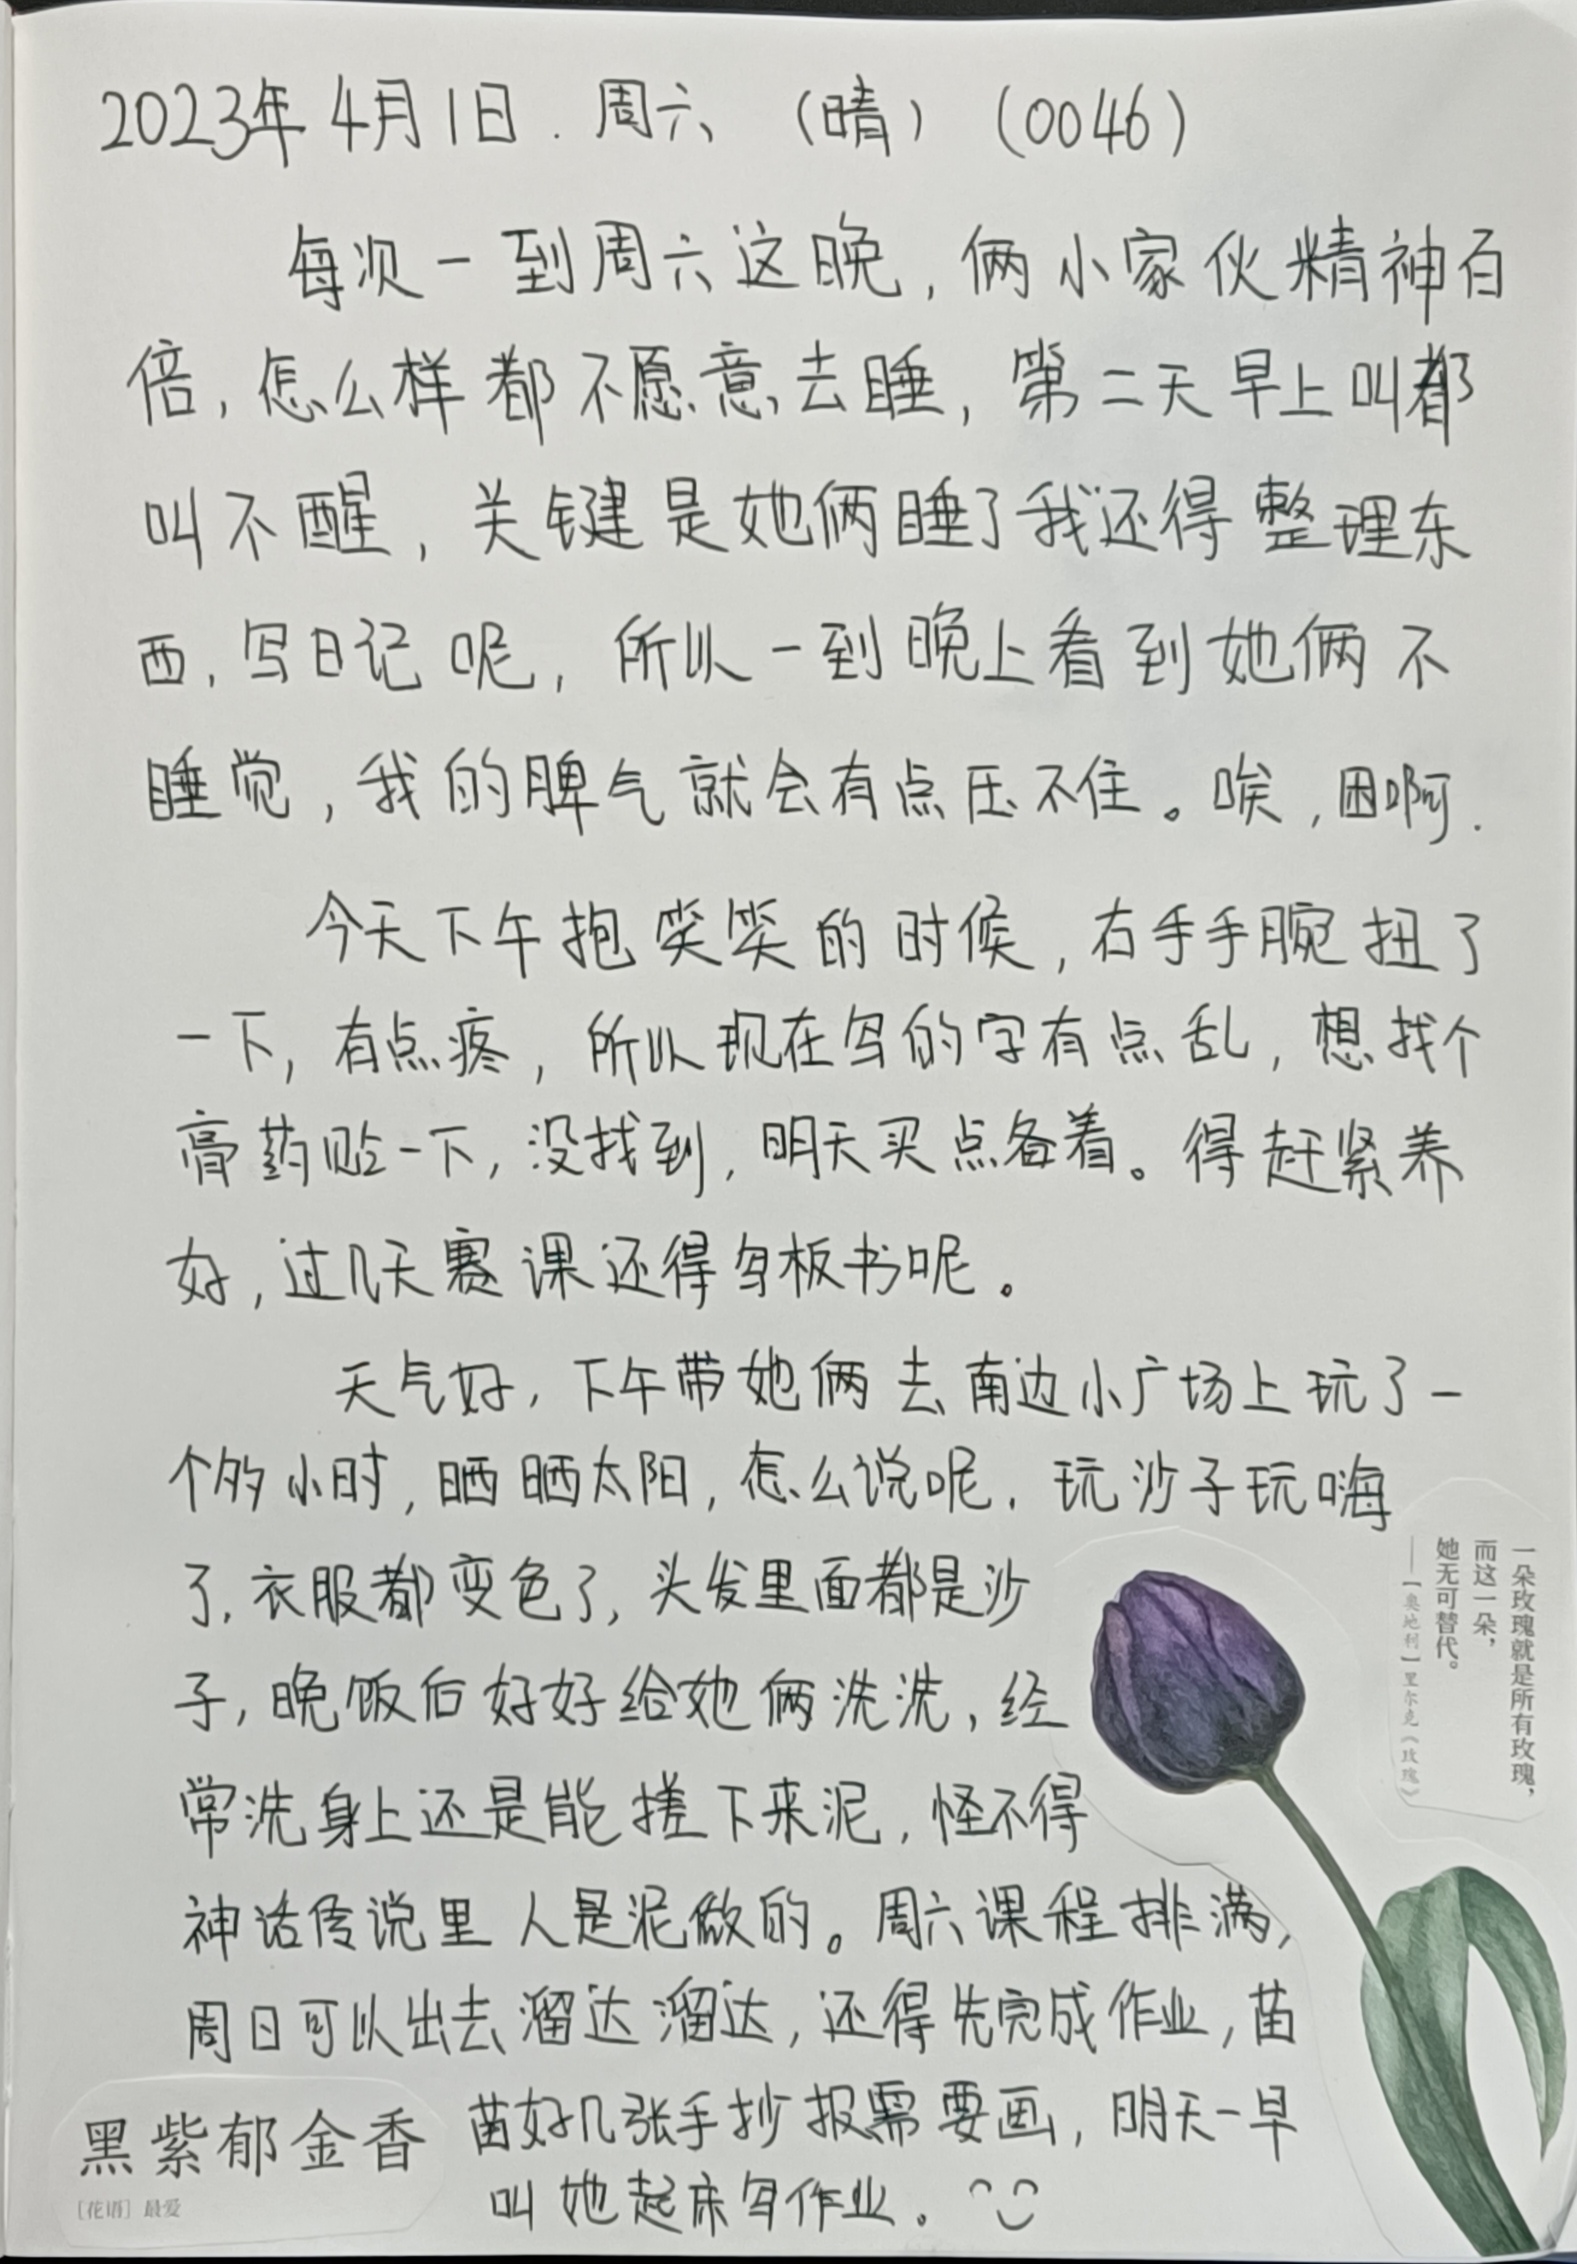 2023年4月1日.周六 （晴）（0046）
每次一到周六这晚，俩小家伙精神百
倍，怎么样都不愿意去睡，第二天早上叫都
叫不醒，关键是她俩睡了我还得整理东
西，写日记呢，所以一到晚上看到她俩不
睡觉，我的脾气就会有点压不住。唉，困啊.
今天下午抱笑笑的时候，右手手腕扭了
一下，有点疼，所以现在写的字有点乱，想找个
膏药贴一下，没找到，明天买点备着。得赶紧养
好，过几天赛课还得写板书呢。
天气好，下午带她俩去南边小广场上玩了一
个多小时，晒晒太阳，怎么说呢，玩沙子玩嗨
了，衣服都变色了，头发里面都是沙
子，晚饭后好好给她俩洗洗，经
常洗身上还是能搓下来泥，怪不得
神话传说里人是泥做的。周六课程排满，
周日可以出去溜达溜达，还得先完成作业，苗
苗好几张手抄报需要画，明天一早
叫她起床写作业。
一朵玫瑰就是所有玫瑰，
而这一朵，
她无可替代。
——［奥地利］里尔克《玫瑰》
黑紫郁金香
［花语］最爱